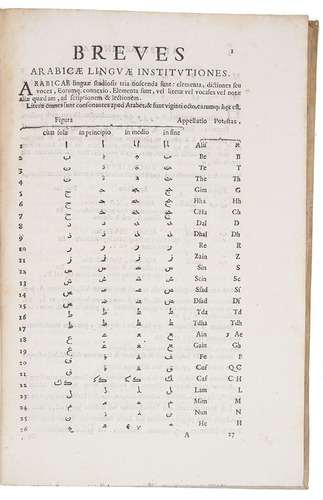 1
BREVES
ARABICÆ LINGVÆ INSTITVTIONES.
ARABICAE linguæ studiosis tria noscenda sunt: elementa, dictiones seu
voces, Eorumq; connexio. Elementa sunt, vel literæ vel vocales vel notæ
aliæ quædam, ad scriptionem & lectionem.
Literæ omnes sunt consonantes apud Arabes, & sunt viginti octo, earumq; hęc est.
Figura Appellatio Potestas.
cùm solæ in principio in medio in fine
1 ا ا ا ا Alif
2 ب ب ب ب Be B
3 ت ت ت ت Te T
4 ث ث ث ث The Th
5 ج ج ج ج Gim G
6 ح ح ح ح Hha Hh
7 خ خ خ خ CHa Ch
8 د د د د Dal D
9 ذ ذ ذ ذ Dhal Dh
10 ر ر ر ر Re R
11 ز ز ز ز Zain Z
12 س س س س Sin S
13 ش ش ش ش Scin Sc
14 ص ص ص ص Sſad Sſ
15 ض ض ض ض Dſad Dſ
16 ط ط ط ط Tda Td
17 ظ ظ ظ ظ Tdha Tdh
18 ع ع ع ع Ain Ae
19 غ غ غ غ Gain Gh
20 ف ف ف ف Fe F
21 ق ق ق ق Cof QC
22 ك ك ك ك Caf CH
23 ل ل ل ل Lam L
24 م م م م Mim M
25 ن ن ن ن Nun N
26 ه ه ه ه He H
A 27